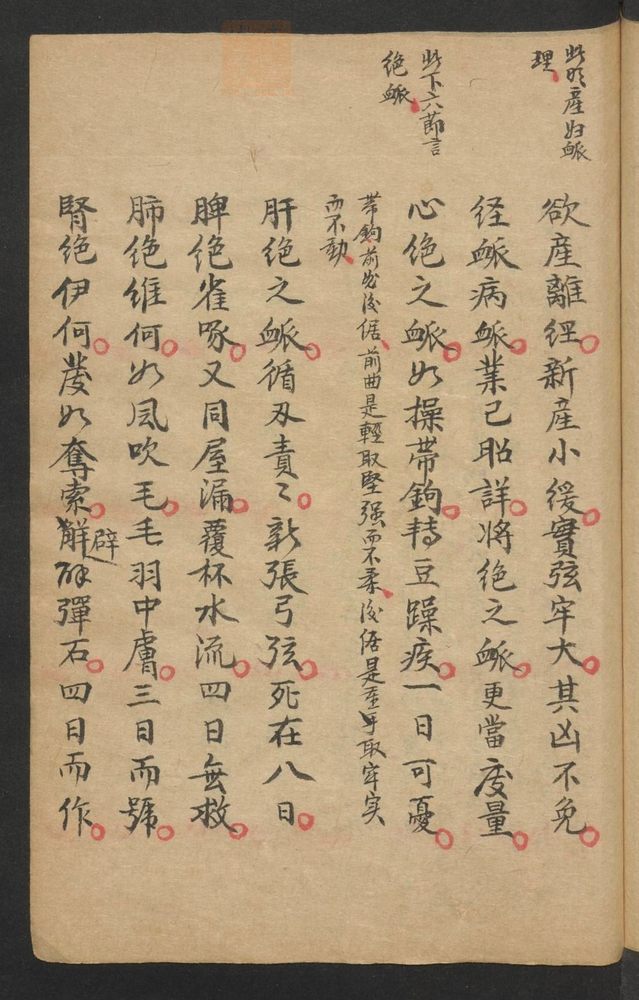 此明產妇脈
理
此下六節言
絶脈
欲產離經新產小緩實弦牢大其凶不免
経脈病脈業已昭詳将絶之脈更當度量
心絶之脈如操帯鉤轉豆躁疾一日可憂
帯鉤前曲後倨前曲是輕取堅强而不柔後倨是重手取牢实
而不動
肝絶之脈循刃責〻新張弓弦死在八日
脾絶雀啄又同屋漏覆杯水流四日無救
肺絶維何如风吹毛毛羽中膚三日而號
腎絶伊何發如奪索辟解砳彈石四日而作